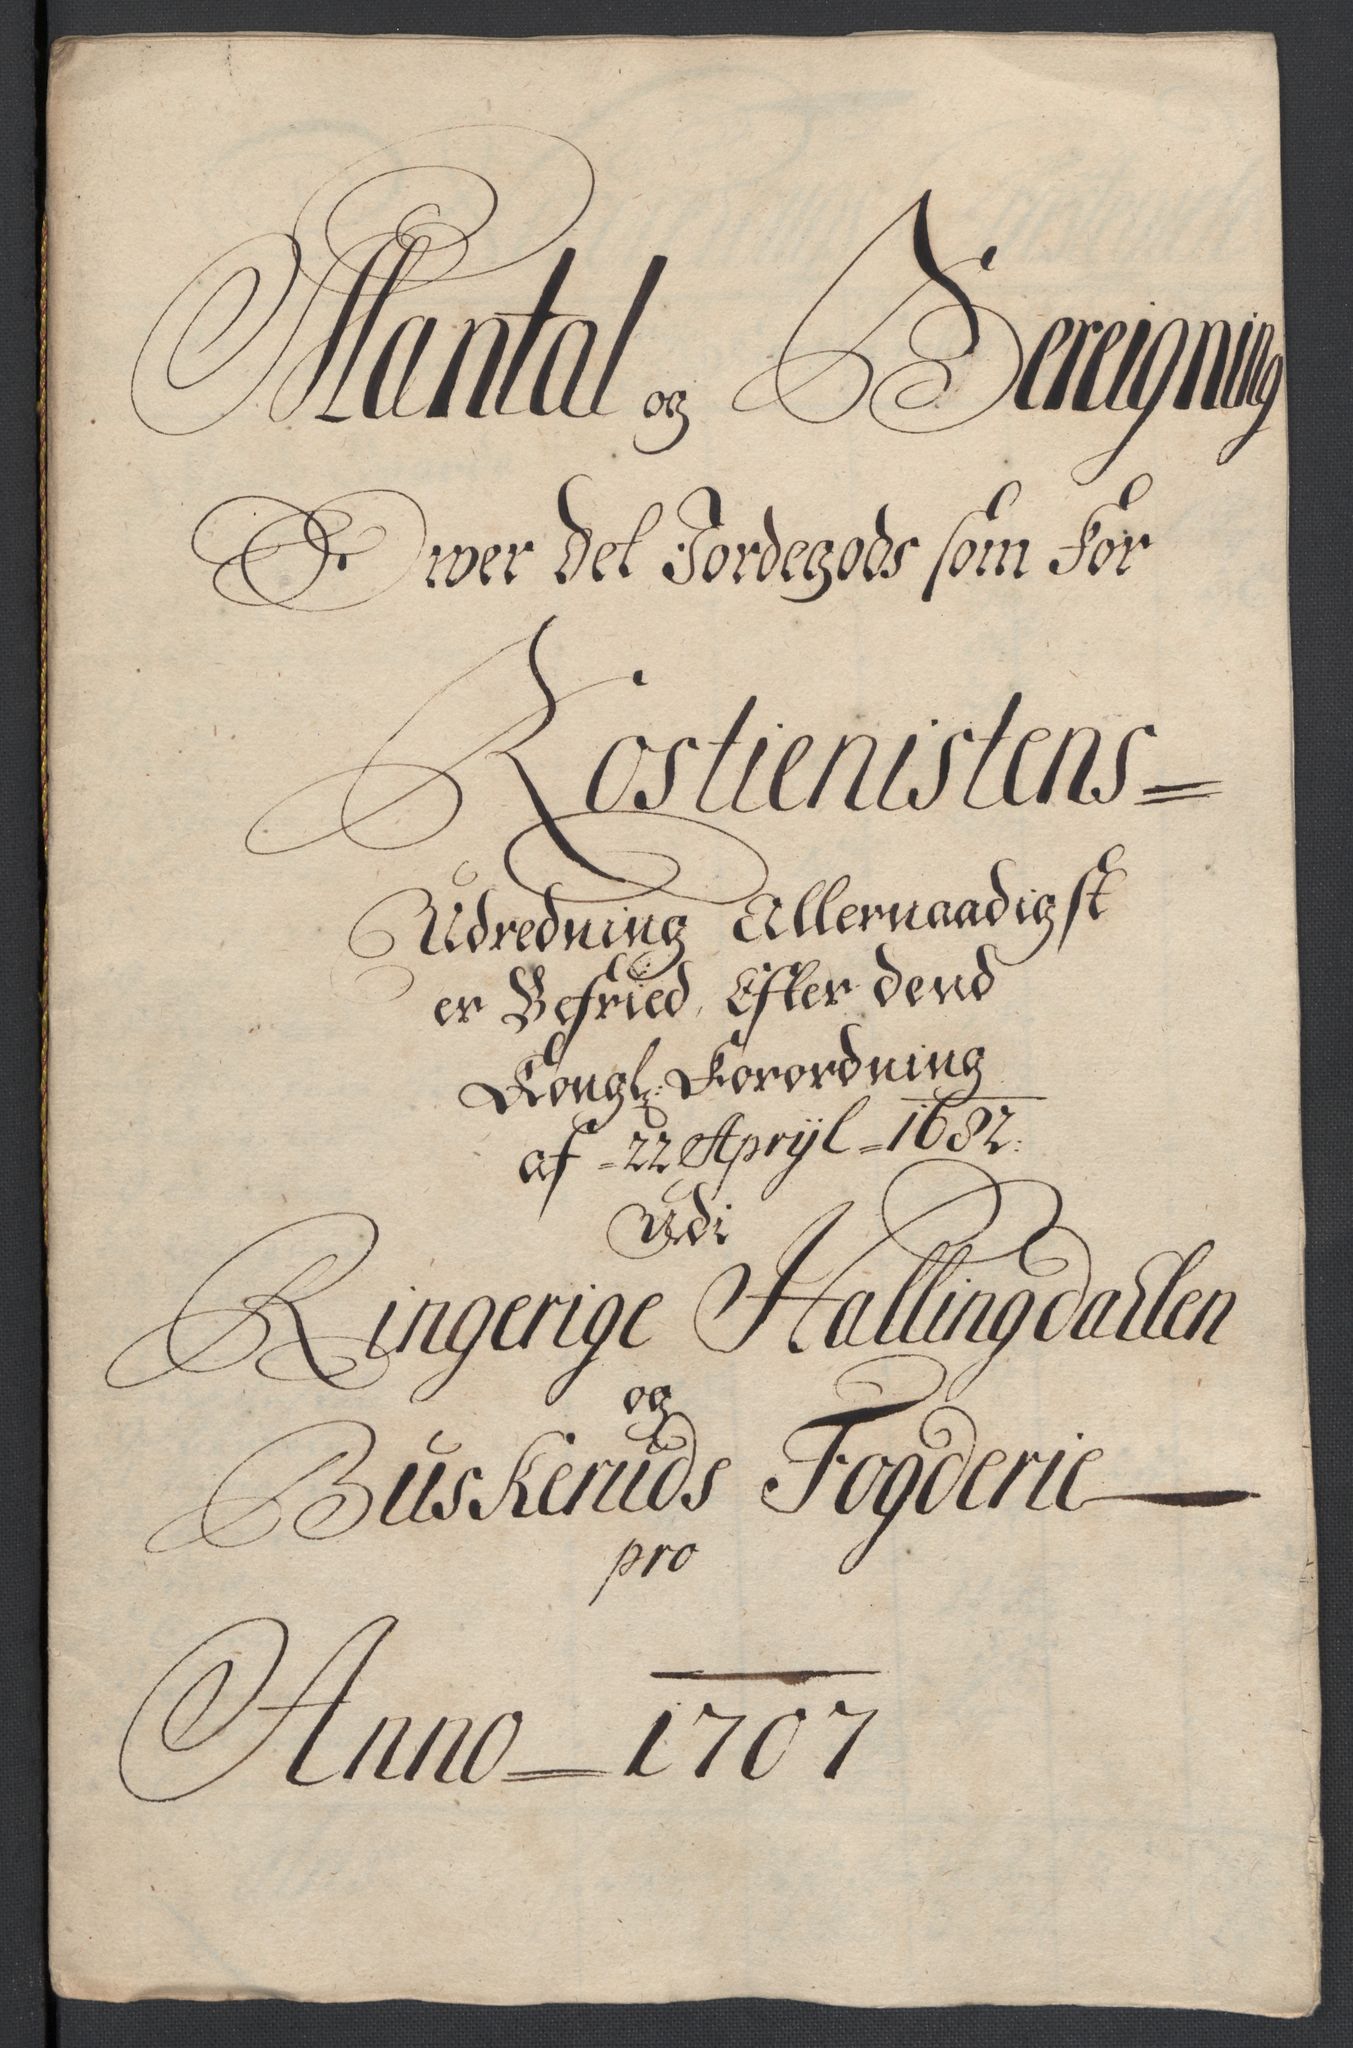 Mantal og Bereigning
Ofwer Det Jordegods som for
Rostienistens=
Udredning Allernaadigst
er Befried, Efter dend
Kongl: Forordning
af =22 Aprÿl =1682:
Udi
Ringerige Hallingdahlen
og
Buskeruds Fogderie
pro
Anno = 1707